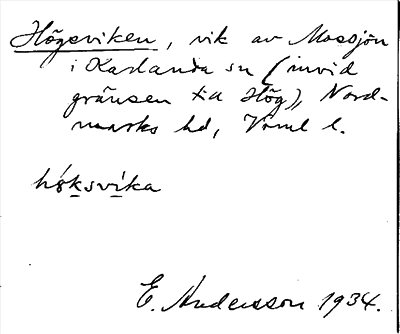 Högsviken, vik av Mossjön
i Karlanda sn (invid
gränsen till Hög), Nord-
marks hd, Värml l.
hǿksvíka
E. Andersson 1934.